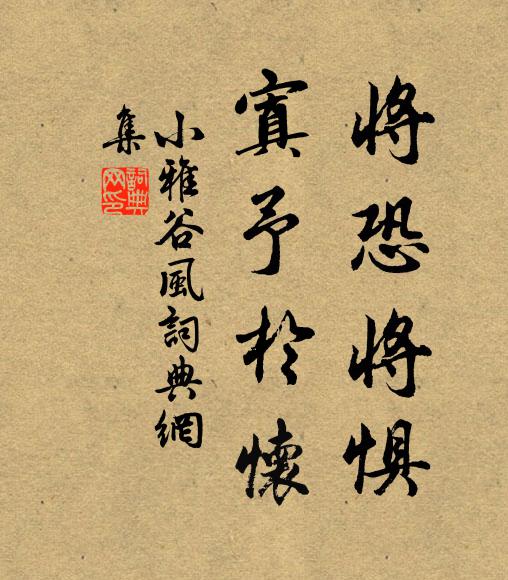 將恐將懼
寘予於懷
小雅谷風詞典網
集
詞典
网印